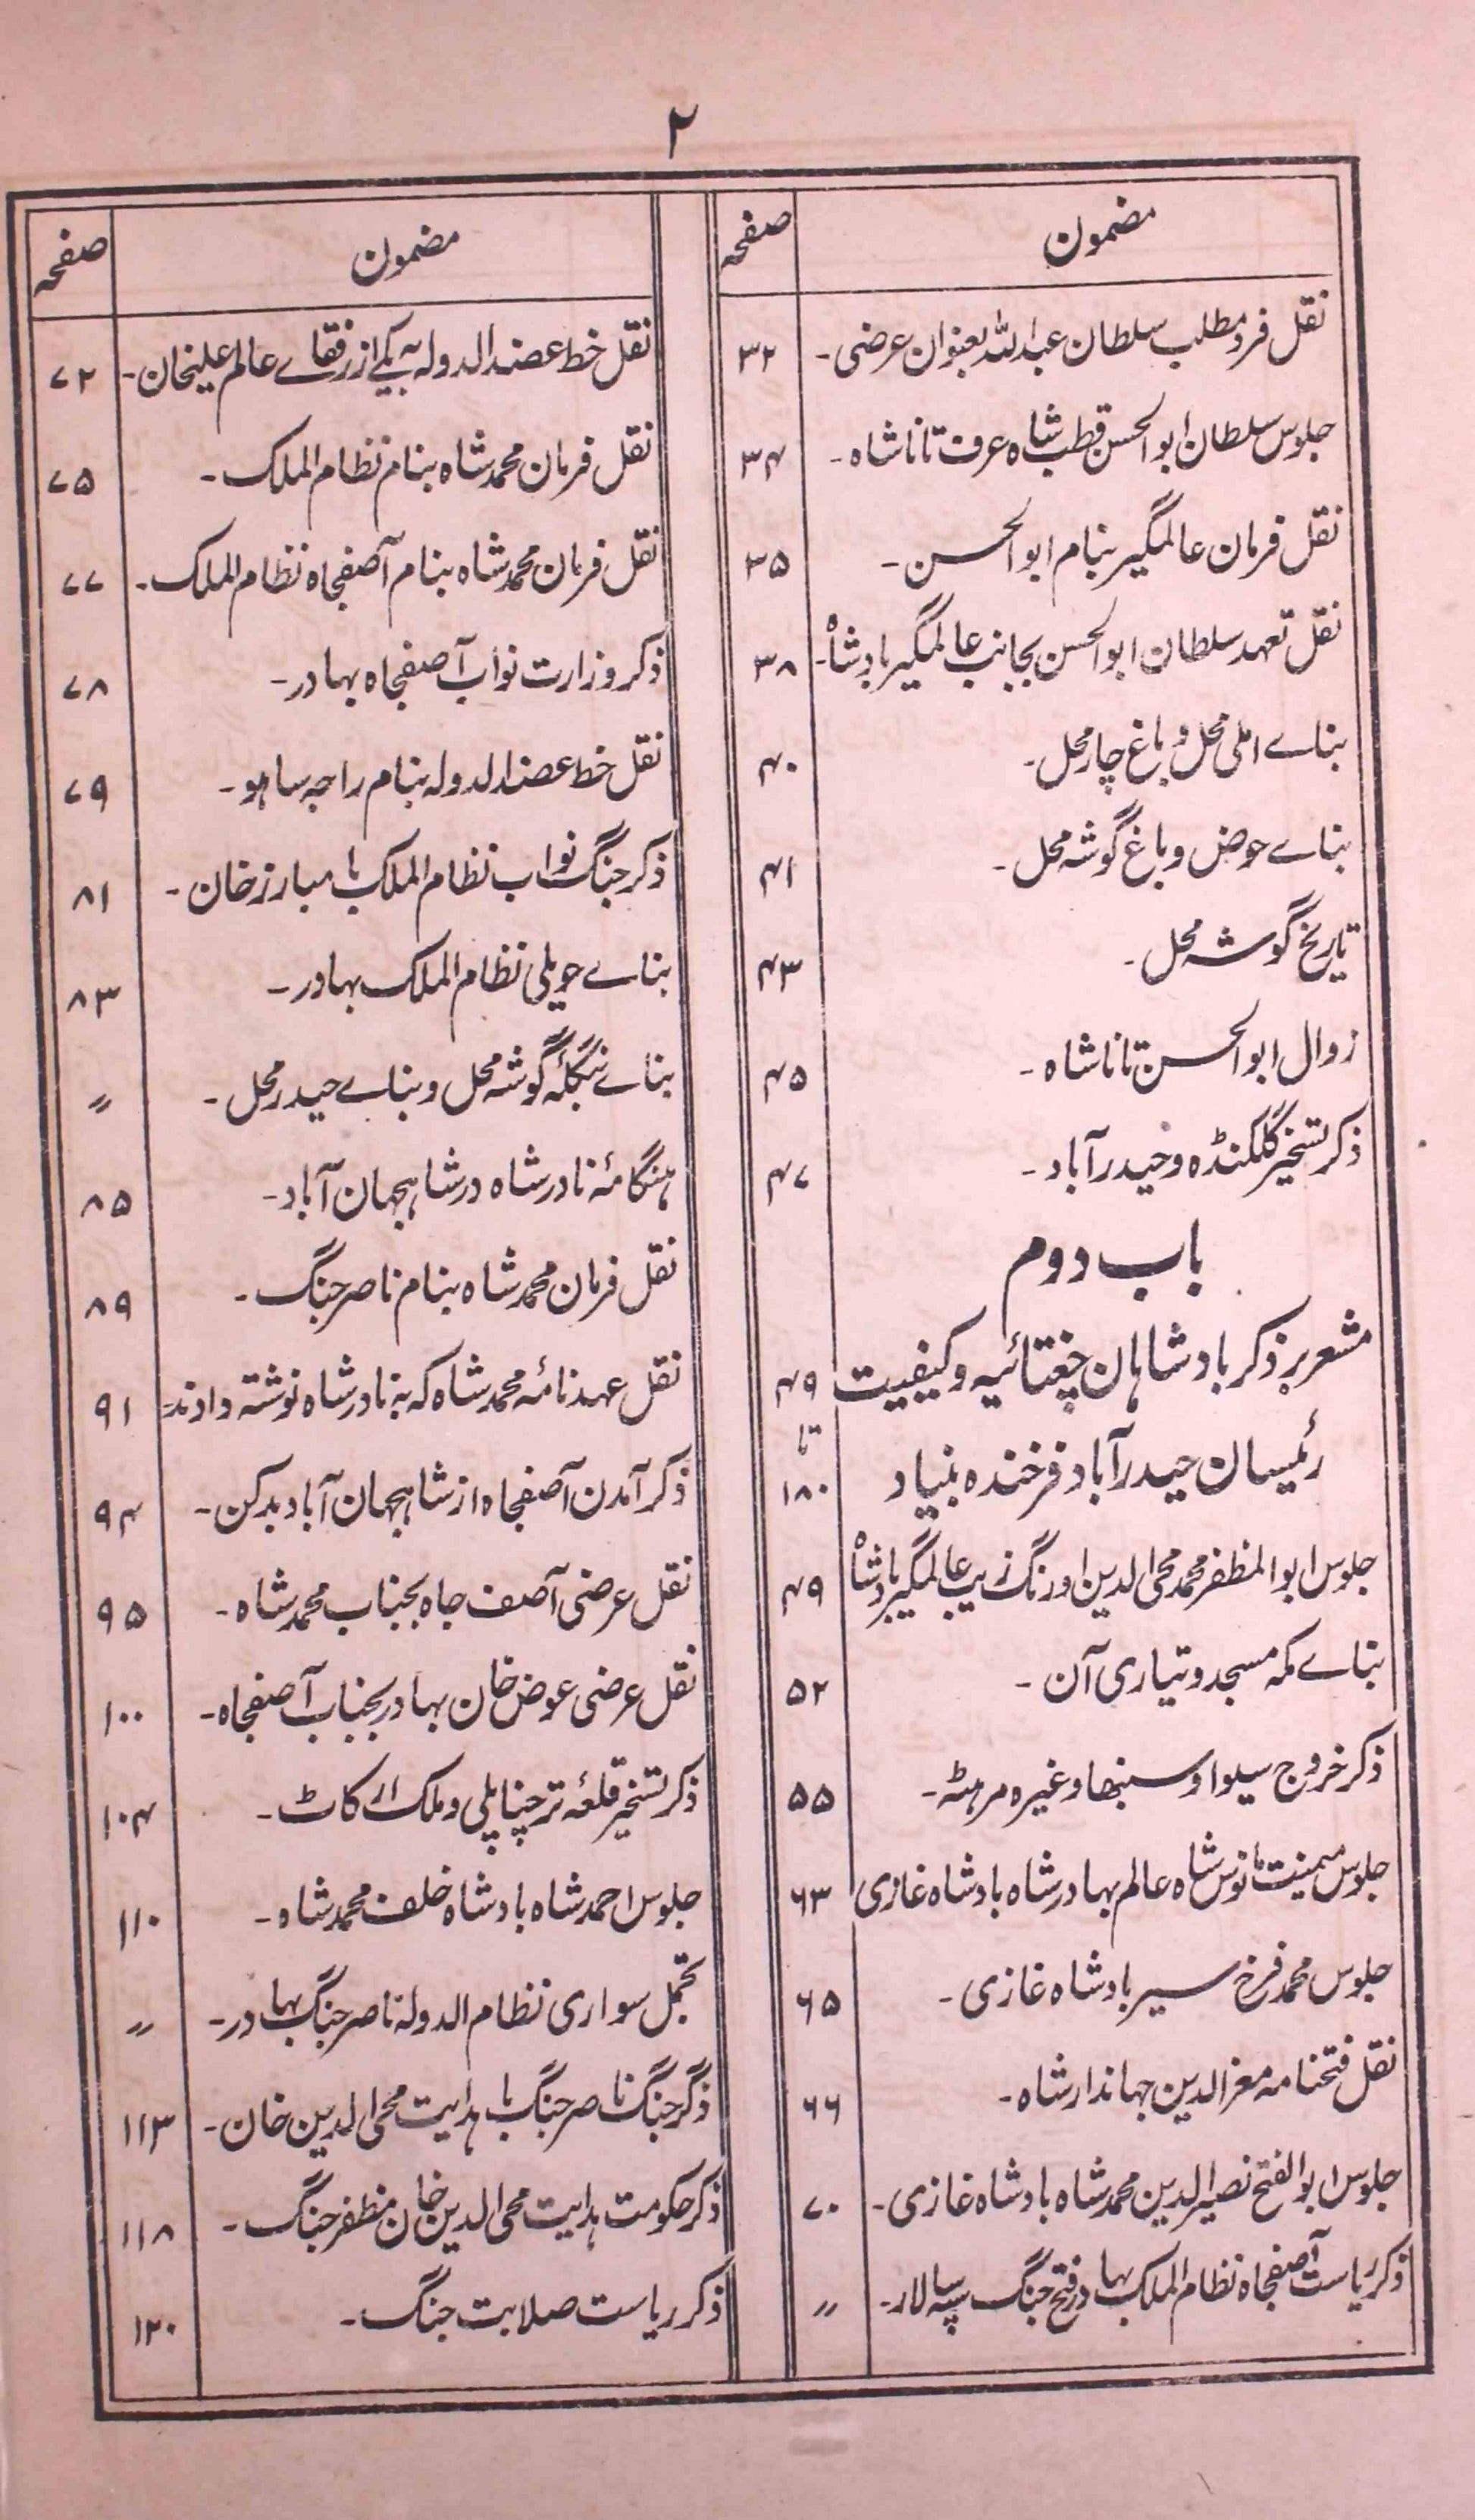 ۲
مضمون صفحہ
نقل فرد مطلب سلطان عبداللہ بعنوان عرضی۔ ۳۲
جلوس سلطان ابوالحسن قطب شاہ عرف تاناشاہ۔ ۳۴
نقل فرمان عالمگیر بنام ابوالحسن۔ ۳۵
نقل تعہد سلطان ابوالحسن بجانب عالمگیر بادشاہ۔ ۳۸
بناے املی محل و باغ چار محل۔ ۴۰
بناے حوض و باغ گوشہ محل۔ ۴۱
تاریخ گوشہ محل۔ ۴۳
زوال ابوالحسن تاناشاہ۔ ۴۵
ذکر تسخیر گلکنڈہ و حیدرآباد۔ ۴۷
باب دوم
مشعر بر ذکر بادشاہان چغتائیہ و کیفیت ۴۹
تا
رئیسان حیدرآباد فرخندہ بنیاد ۱۸۰
جلوس ابوالمظفر محمد محی الدین اورنگ زیب عالمگیر بادشاہ ۴۹
بناے مکہ مسجد و تیاری آن۔ ۵۲
ذکر خروج سیوا و سنبھا وغیرہ مرہٹہ۔ ۵۵
جلوس میمنت مانوس شاہ عالم بہادر شاہ بادشاہ غازی ۶۳
جلوس محمد فرخ سیر بادشاہ غازی۔ ۶۵
نقل فتحنامہ معزالدین جہاندار شاہ۔ ۶۶
جلوس ابوالفتح نصیرالدین محمد شاہ بادشاہ غازی۔ ۷۰
ذکر ریاست آصفجاہ نظام الملک بہادر فتح جنگ سپہ سالار۔ 〃
مضمون صفحہ
نقل خط عضدالدولہ بہ یکے از رفقاے عالم علیخان۔ ۷۲
نقل فرمان محمد شاہ بنام نظام الملک۔ ۷۵
نقل فرمان محمد شاہ بنام آصفجاہ نظام الملک۔ ۷۷
ذکر وزارت نواب آصفجاہ بہادر۔ ۷۸
نقل خط عضدالدولہ بنام راجہ ساہو۔ ۷۹
ذکر جنگ نواب نظام الملک با مبارز خان۔ ۸۱
بناے حویلی نظام الملک بہادر۔ ۸۳
بناے بنگلۂ گوشہ محل و بناے حیدر محل۔ 〃
ہنگامۂ نادر شاہ در شاہجہان آباد۔ ۸۵
نقل فرمان محمد شاہ بنام ناصر جنگ۔ ۸۹
نقل عہدنامۂ محمد شاہ کہ بہ نادر شاہ نوشتہ دادند ۹۱
ذکر آمدن آصفجاہ از شاہجہان آباد بدکن۔ ۹۴
نقل عرضی آصف جاہ بجناب محمد شاہ۔ ۹۵
نقل عرضی عوض خان بہادر بجناب آصفجاہ۔ ۱۰۰
ذکر تسخیر قلعۂ ترچناپلی و ملک ارکاٹ۔ ۱۰۴
جلوس احمد شاہ بادشاہ خلف محمد شاہ۔ ۱۱۰
تجمل سواری نظام الدولہ ناصر جنگ بہادر۔ 〃
ذکر جنگ ناصر جنگ با ہدایت محی الدین خان۔ ۱۱۳
ذکر حکومت ہدایت محی الدین خان مظفر جنگ۔ ۱۱۸
ذکر ریاست صلابت جنگ۔ ۱۲۰